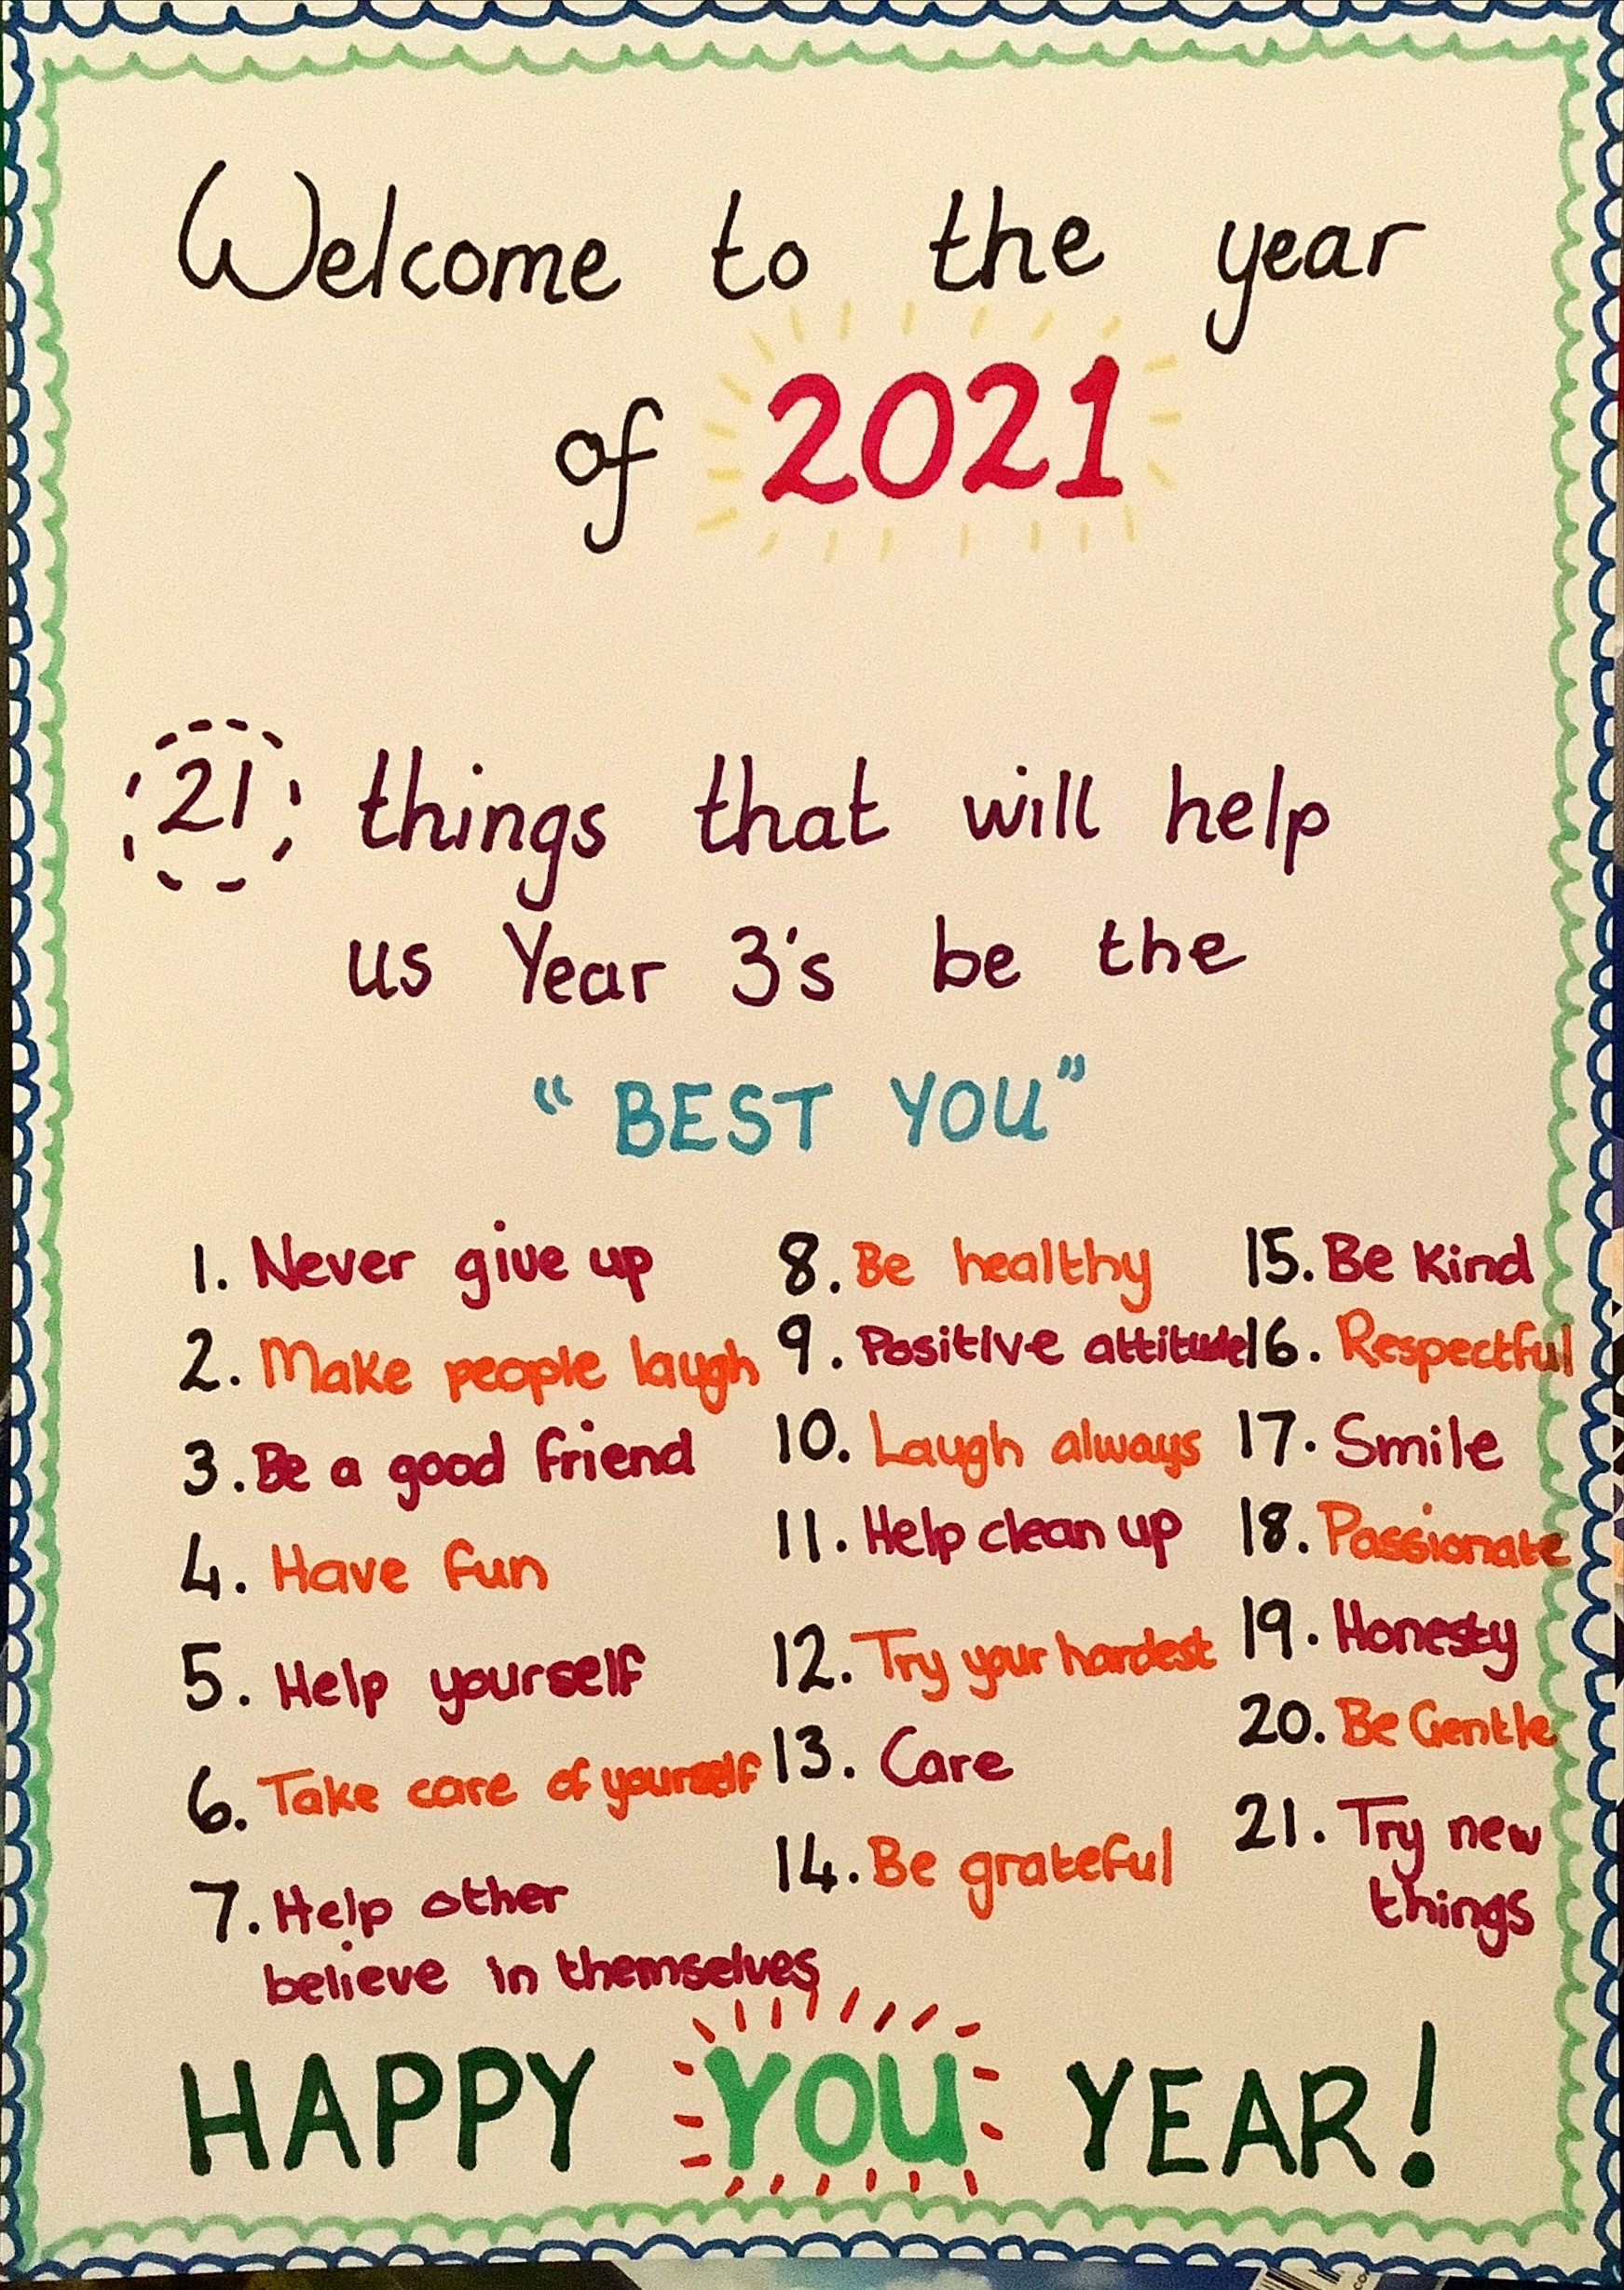 Welcome to the year
of 2021
21 things that will help
us Year 3's be the
"BEST YOU"
1. Never give up
2. Make people laugh
3. Be a good friend
4. Have fun
5. Help yourself
6. Take care of yourself
7. Help other
believe in themselves
8. Be healthy
9. Positive attitude
10. Laugh always
11. Help clean up
12. Try your hardest
13. Care
14. Be grateful
15. Be kind
16. Respectful
17. Smile
18. Passionate
19. Honesty
20. Be Gentle
21. Try new
things
HAPPY YOU YEAR!